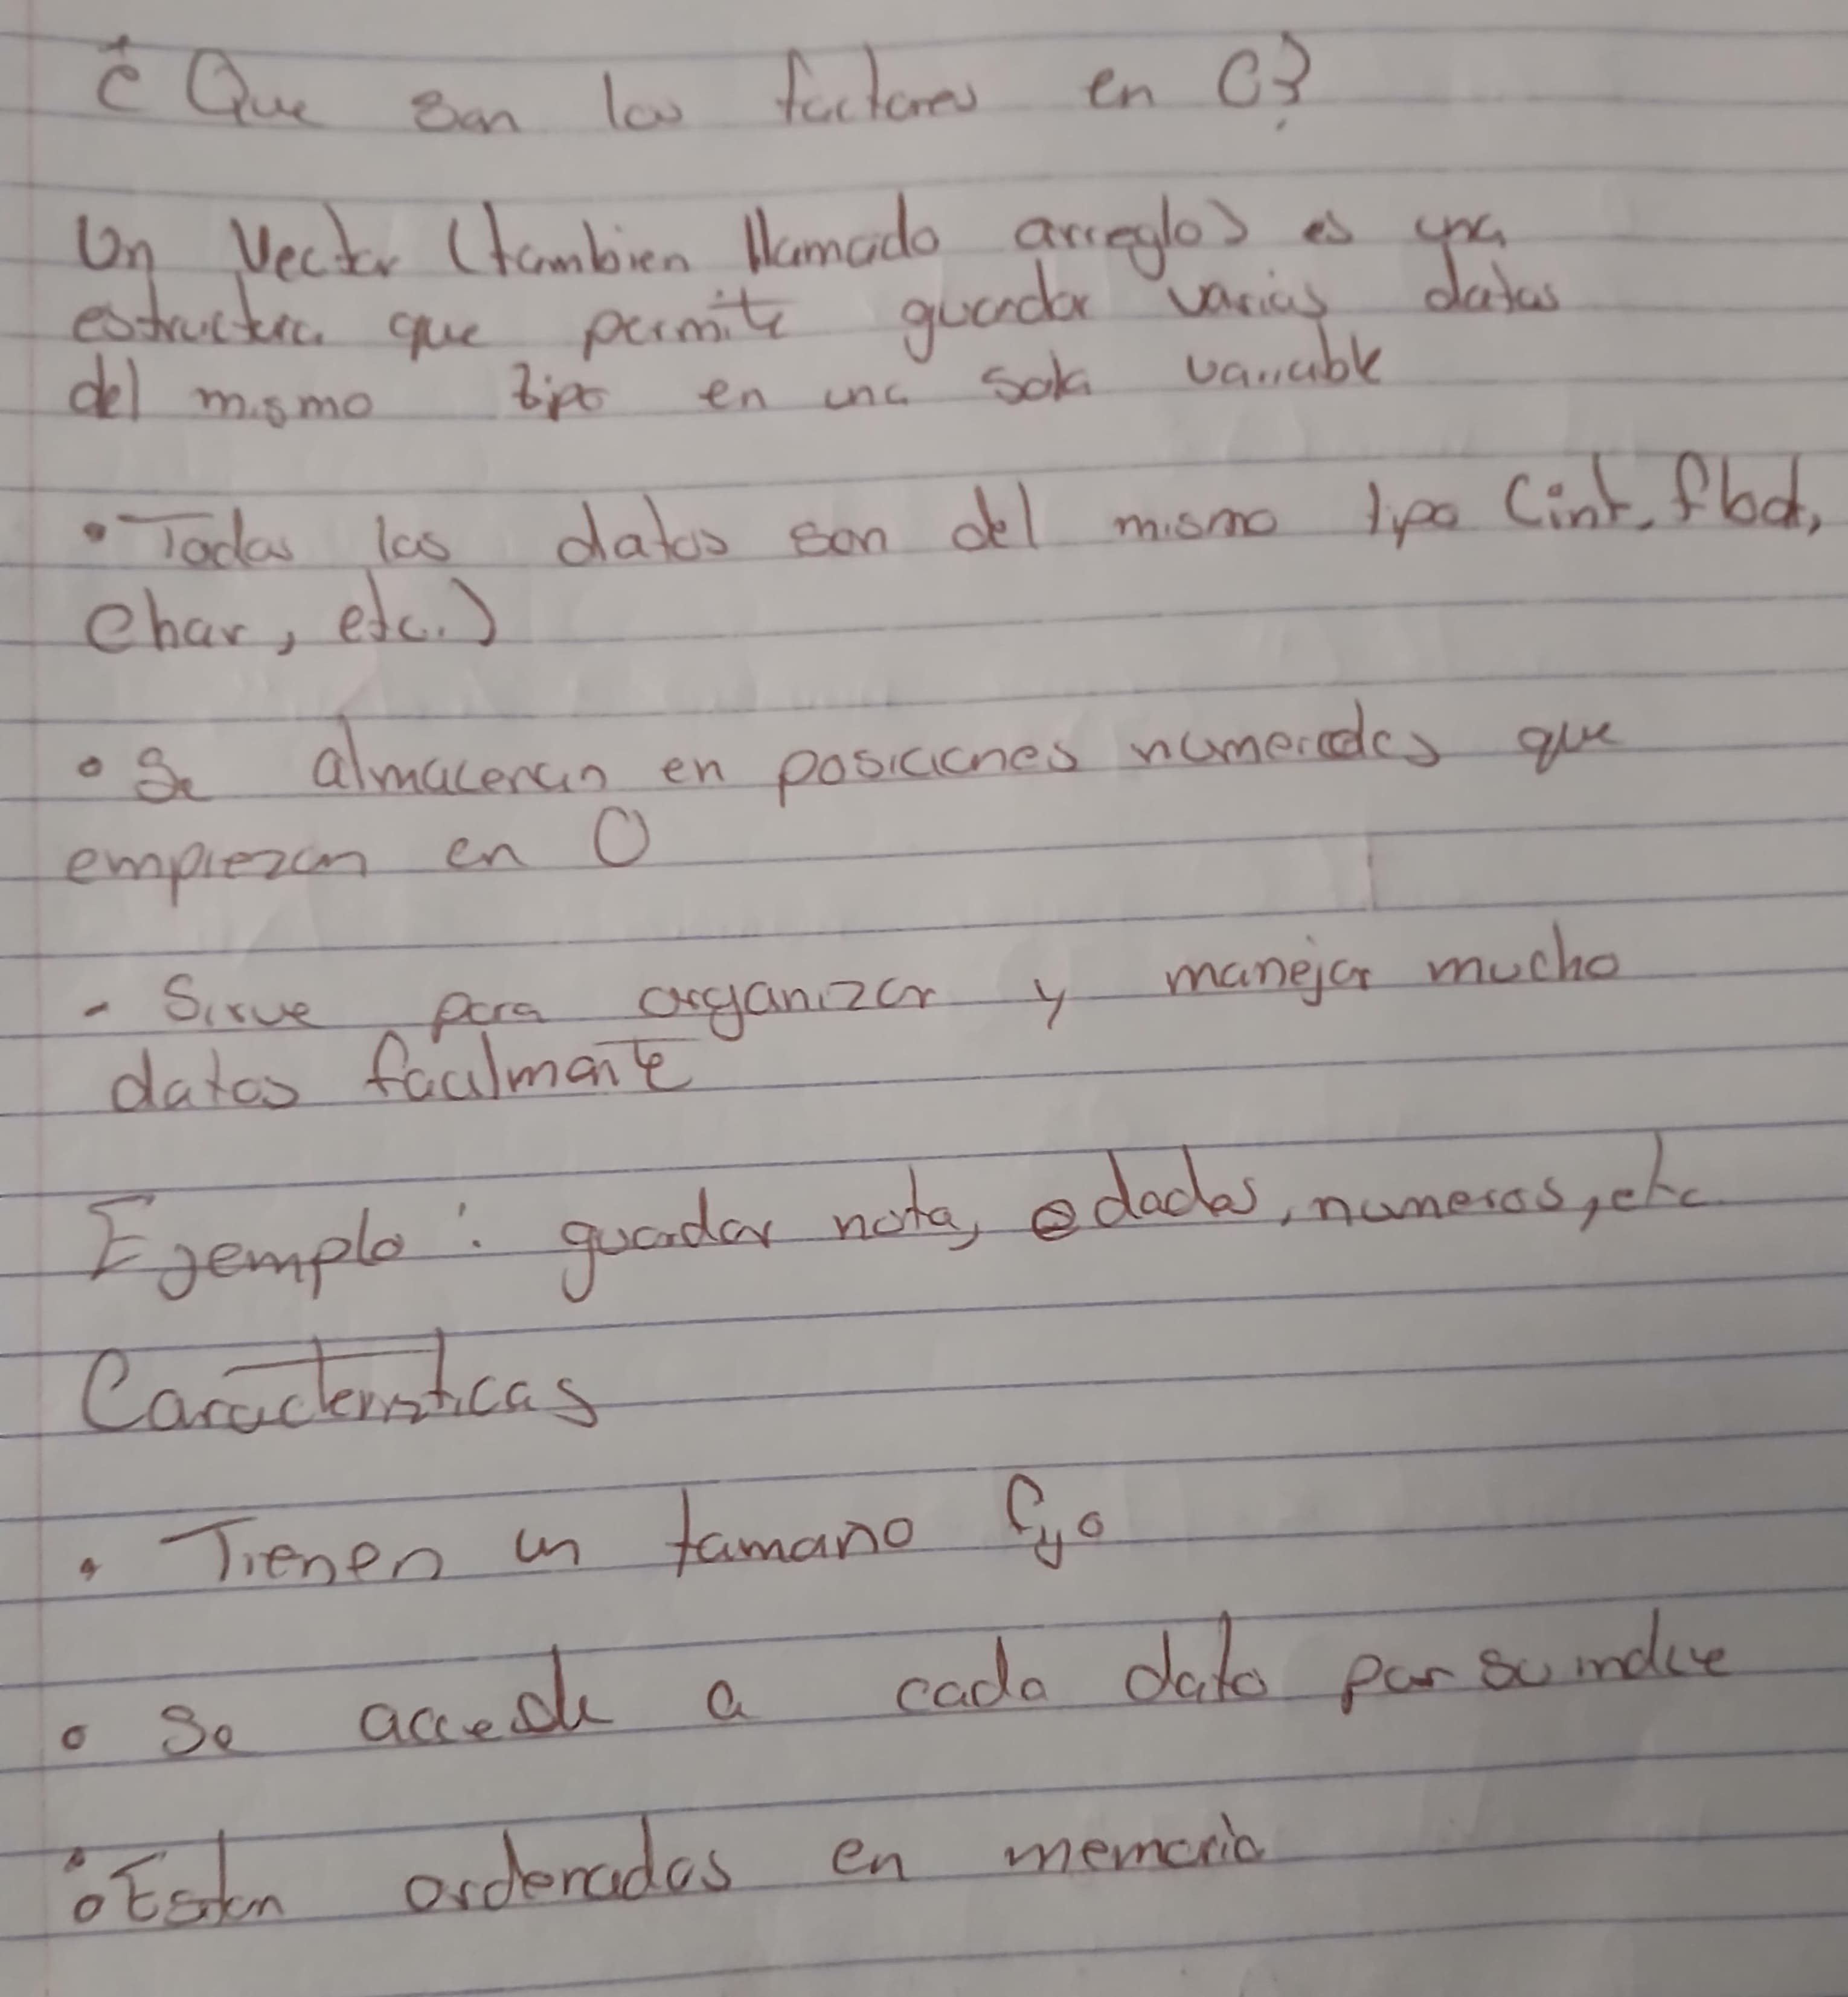 ¿Que son los factores en C?
Un Vector (tambien llamado arreglo) es una
estructura que permite guardar varios datos
del mismo tipo en una sola variable
• Todos los datos son del mismo tipo (int, float,
char, etc.)
• Se almacenan en posiciones numeradas que
empiezan en 0
- Sirve para organizar y manejar mucho
datos facilmente
Ejemplo: guardar nota, edades, numeros, etc.
Caracteristicas
• Tienen un tamano fijo
• Se accede a cada dato por su indice
• Estan ordenados en memoria